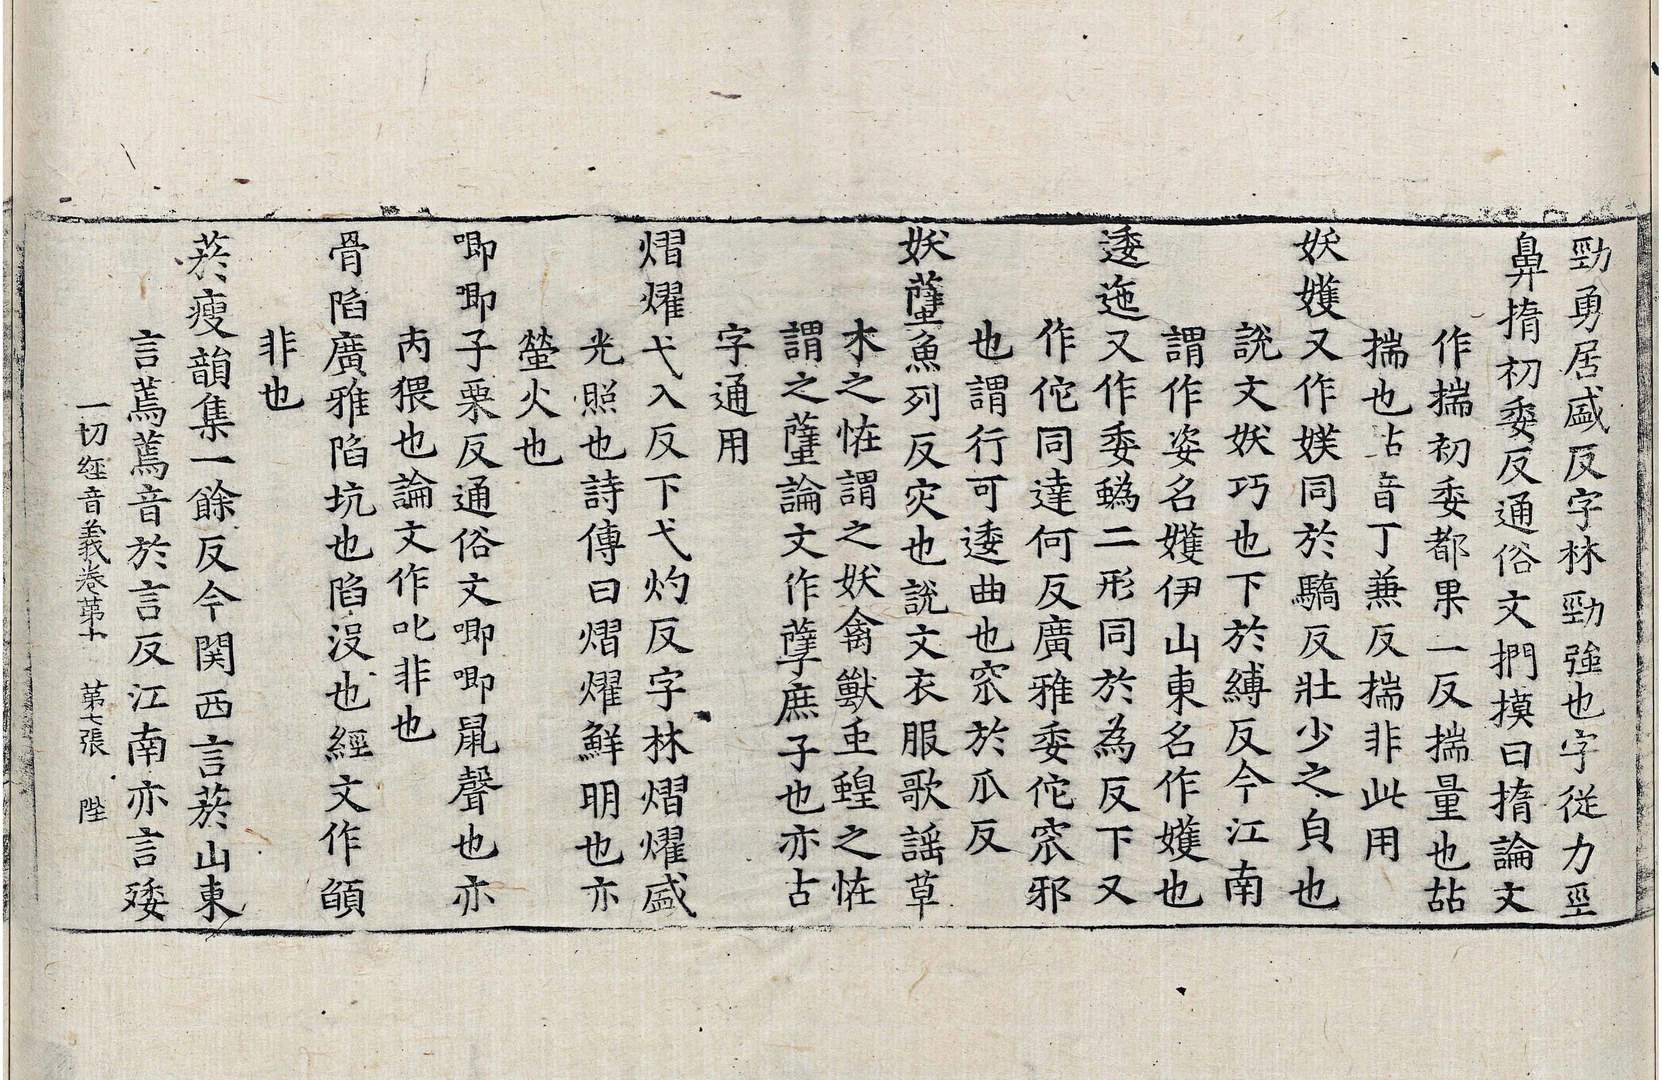 勁勇居盛反字林勁強也字從力巠
鼻揣初委反通俗文捫摸曰揣論文
作揣初委都果二反揣量也㪷
揣也㪷音丁兼反揣非此用
妖孇又作媄同於驕反壯少之皃也
說文妖巧也下於縛反今江南
謂作姿名孇伊山東名作孇也
逶迤又作委蟡二形同於為反下又
作佗同達何反廣雅委佗窊邪
也謂行可逶曲也窊於瓜反
妖𧀼魚列反灾也說文衣服歌謠草
木之恠謂之妖禽獸虫蝗之恠
謂之𧀼論文作孽庶子也亦古
字通用
熠燿弋入反下弋灼反字林熠燿盛
光照也詩傳曰熠燿鮮明也亦
螢火也
唧唧子栗反通俗文唧唧鼠聲也亦
呙猥也論文作叱非也
骨陷廣雅陷坑也陷沒也經文作䪼
非也
菸瘦韻集一餘反今関西言菸山東
言蔫蔫音於言反江南亦言矮
一切經音義卷苐十　苐七張　陛